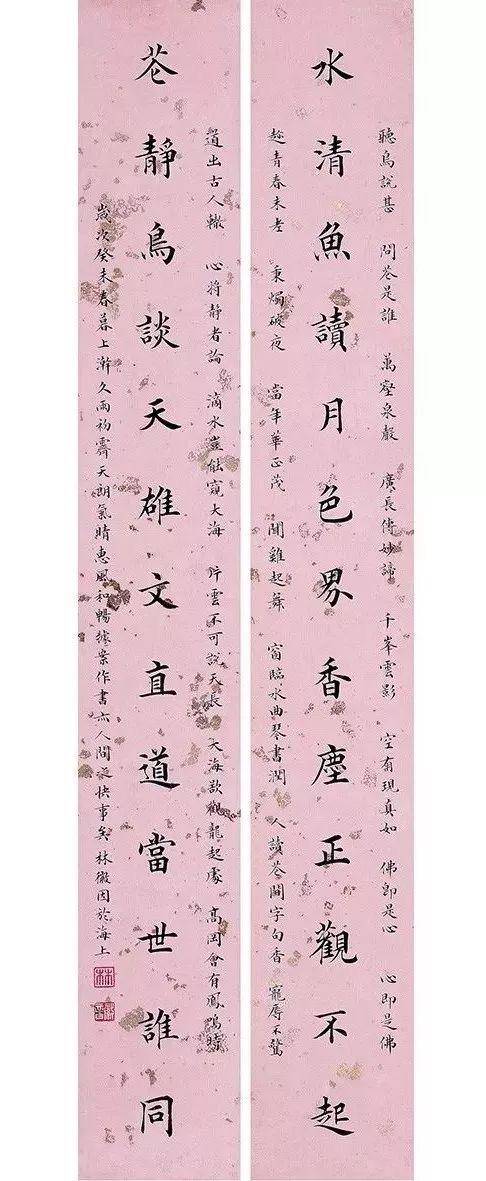 聽鳥説甚 問花是誰 萬壑泉聲 廣長傳妙諦 千峯雲影 空有現真如 佛即是心 心即是佛
水清魚讀月色界香塵正觀不起
趁青春未老 秉燭破夜 當年華正茂 聞雞起舞 窗臨水曲琴書潤 人讀花間字句香 寵辱不驚
道出古人轍 心将静者論 滴水豈能窺大海 片雲不可説天長 大海欲觀龍起處 高岡會有鳳鳴時
花靜鳥談天雄文直道當世誰同
歲次癸未春暮上澣久雨初霽天朗氣晴惠風和暢據案作書亦人間之快事矣林徽因於海上